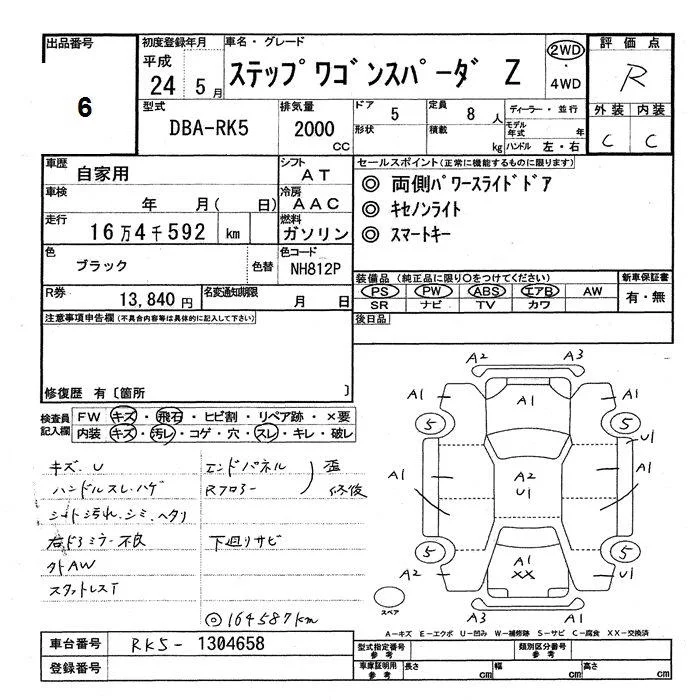 出品番号
6
初度登録年月
平成
24 5月
車名・グレード
ステップワゴンスパーダ Z
2WD
・
4WD
評価点
R
外装 内装
C C
型式
DBA-RK5
排気量
2000
CC
ドア 5
形状
定員 8 人
積載 kg
ディーラー・並行
モデル年式 年
ハンドル 左・右
車歴
自家用
シフト
AT
車検
年 月( 日)
冷房
AAC
走行
16万4千592 km
燃料
ガソリン
色
ブラック
色替
色コード
NH812P
R券
13,840円
名変通知期限
月 日
セールスポイント(正常に機能するものに限ります)
◎ 両側パワースライドドア
◎ キセノンライト
◎ スマートキー
装備品(純正品に限り○をつけてください)
PS PW ABS エアB AW
SR ナビ TV カワ
新車保証書
有・無
後日品
注意事項申告欄(不具合内容等は具体的に記入して下さい)
修復歴 有〔箇所 〕
検査員
記入欄
FW キズ・飛石・ヒビ割・リペア跡・×要
内装 キズ・汚レ・コゲ・穴・スレ・キレ・破レ
キズ、U
ハンドルスレ・ハゲ
シート汚れ、シミ、ヘタリ
右ドアミラー不良
外AW
スタットレスT
エンドパネル
Rフロアー
歪
修後
下廻リサビ
◎164587km
A2 A3
A1 A1 A1
5 5
U1
A1 A2 A1
U1
5 5
A2 A1 U1
XX
A3 A1
スペア
A-キズ E-エクボ U-凹み W-補修跡 S-サビ C-腐食 XX-交換済
車台番号
RK5-1304658
登録番号
型式指定番号
参考
類別区分番号
参考
車庫証明用
参考
長さ cm
幅 cm
高さ cm